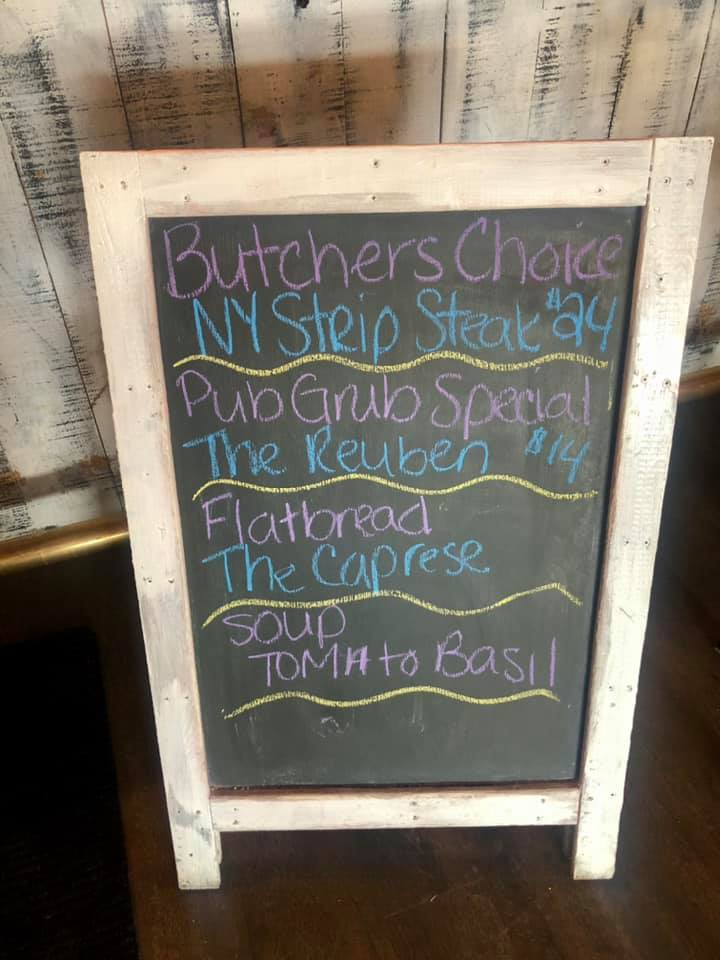 Butchers Choice
NY Strip Steak $24
Pub Grub Special
The Reuben $14
Flatbread
The Caprese
Soup
TOMAto Basil